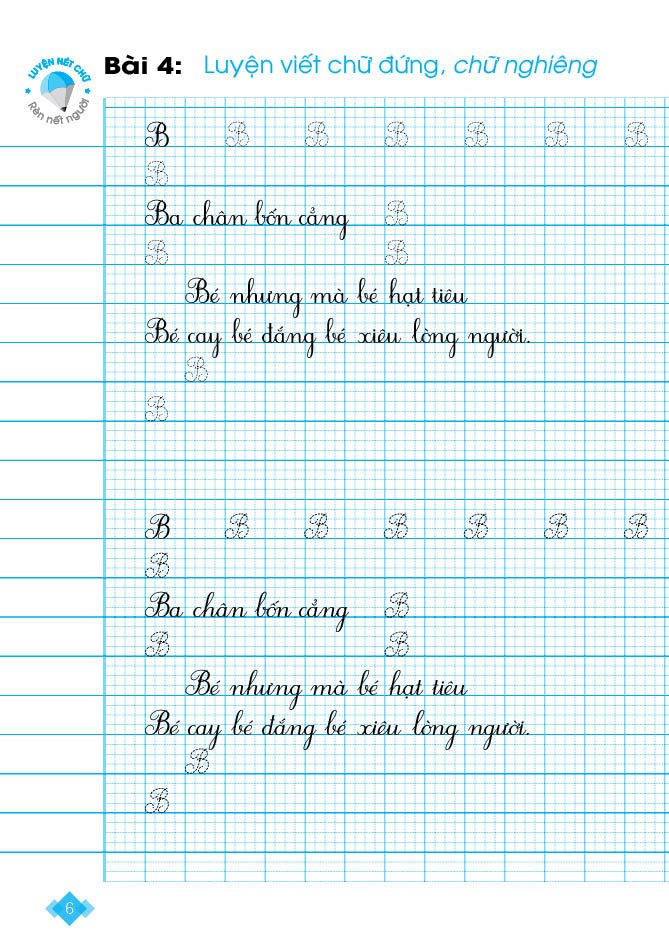 LUYỆN NÉT CHỮ
Rèn nết người
Bài 4: Luyện viết chữ đứng, chữ nghiêng
B B B B B B B
B
Ba chân bốn cẳng B
B B
Bé nhưng mà bé hạt tiêu
Bé cay bé đắng bé xiêu lòng người.
B
B
B B B B B B B
B
Ba chân bốn cẳng B
B B
Bé nhưng mà bé hạt tiêu
Bé cay bé đắng bé xiêu lòng người.
B
B
6